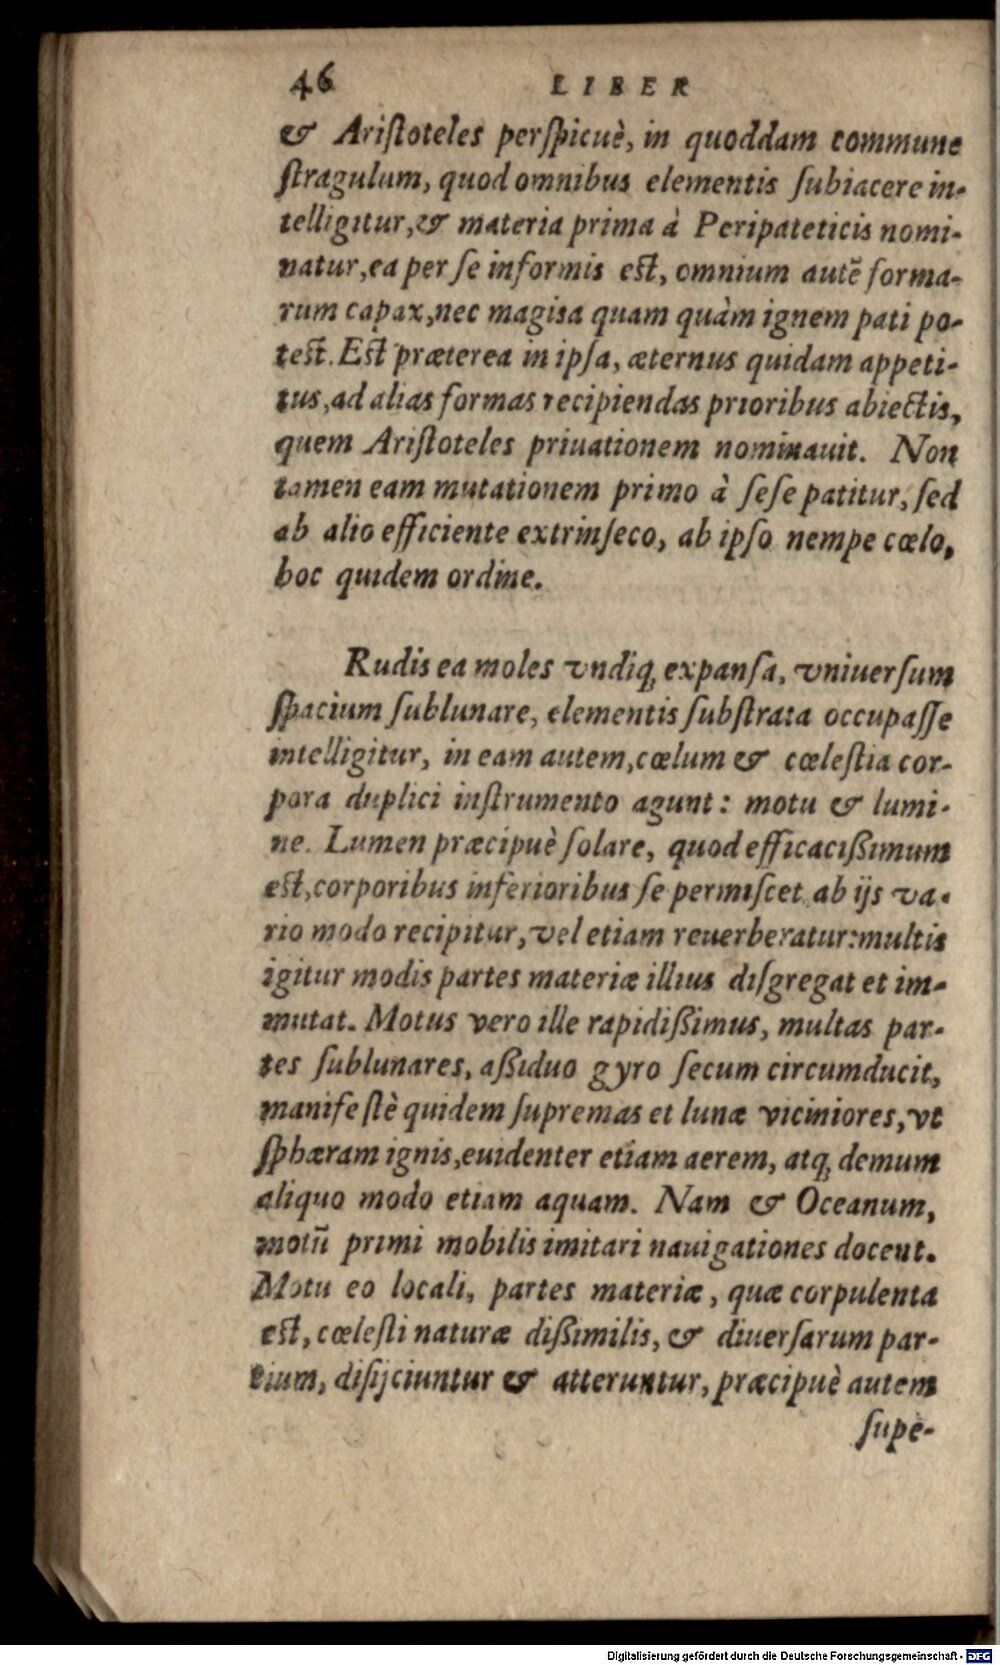 46 LIBER
& Ariſtoteles perſpicuè, in quoddam commune
ſtragulum, quod omnibus elementis ſubiacere in-
telligitur, & materia prima à Peripateticis nomi-
natur, ea per ſe informis eſt, omnium autē forma-
rum capax, nec magis a quam quàm ignem pati po-
teſt. Eſt præterea in ipſa, æternus quidam appeti-
tus, ad alias formas recipiendas prioribus abiectis,
quem Ariſtoteles priuationem nominauit. Non
tamen eam mutationem primo à ſeſe patitur, ſed
ab alio efficiente extrinſeco, ab ipſo nempe cœlo,
hoc quidem ordine.
Rudis ea moles vndiq; expanſa, vniuerſum
ſpacium ſublunare, elementis ſubſtrata occupaſſe
intelligitur, in eam autem, cœlum & cœleſtia cor-
pora duplici inſtrumento agunt: motu & lumi-
ne. Lumen præcipuè ſolare, quod efficacißimum
eſt, corporibus inferioribus ſe permiſcet ab ijs va-
rio modo recipitur, vel etiam reuerberatur: multis
igitur modis partes materiæ illius diſgregat et im-
mutat. Motus vero ille rapidißimus, multas par-
tes ſublunares, aßiduo gyro ſecum circumducit,
manifeſtè quidem ſupremas et lunæ viciniores, vt
ſphæram ignis, euidenter etiam aerem, atq; demum
aliquo modo etiam aquam. Nam & Oceanum,
motū primi mobilis imitari nauigationes docent.
Motu eo locali, partes materiæ, quæ corpulenta
eſt, cœleſti naturæ dißimilis, & diuerſarum par-
tium, diſijciuntur & atteruntur, præcipuè autem
ſupe-
Digitalisierung gefördert durch die Deutsche Forschungsgemeinschaft - DFG